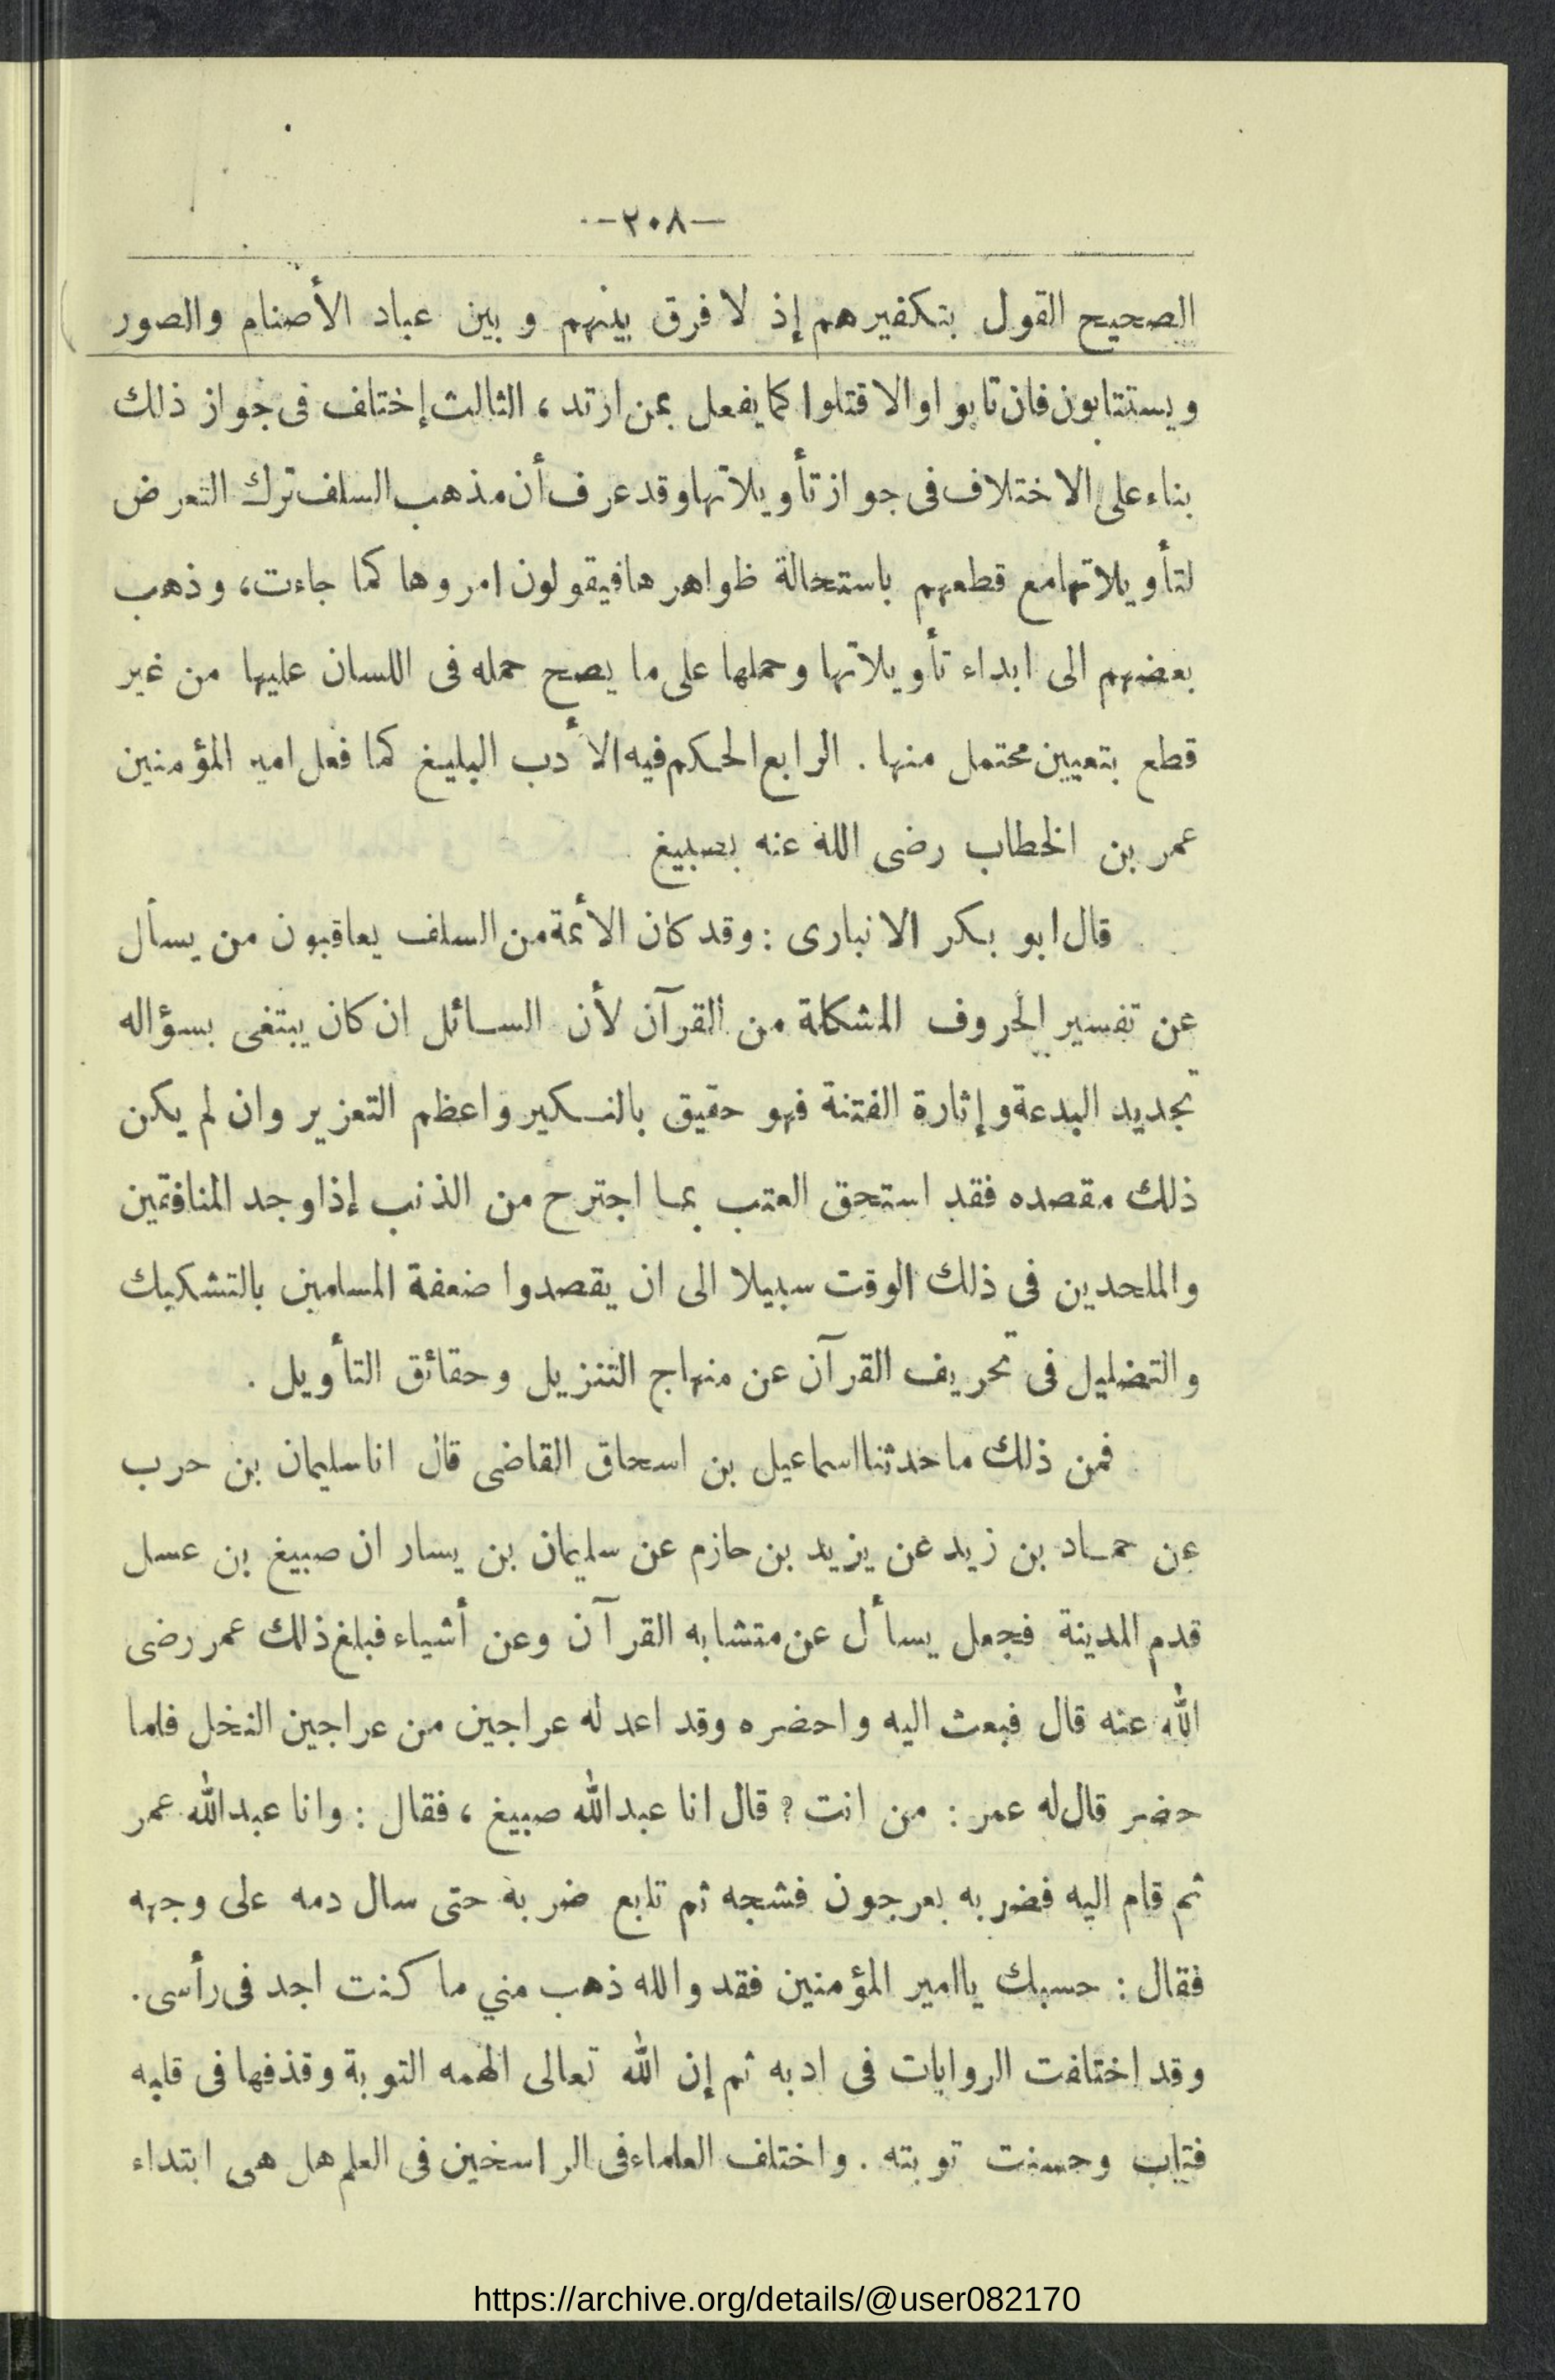 —٢٠٨—
الصحيح القول بتكفيرهم إذ لا فرق بينهم وبين عباد الأصنام والصور
ويستتابون فان تابوا والا قتلوا كما يفعل بمن ارتد، الثالث إختلف فى جواز ذلك
بناء على الاختلاف فى جواز تأويلاتها وقد عرف أن مذهب السلف ترك التعرض
لتأويلاتها مع قطعهم باستحالة ظواهرها فيقولون امروها كما جاءت، وذهب
بعضهم الى ابداء تأويلاتها وحملها على ما يصح حمله فى اللسان عليها من غير
قطع بتعيين محتمل منها . الرابع الحكم فيه الأدب البليغ كما فعل امير المؤمنين
عمر بن الخطاب رضى الله عنه بصبيغ
قال ابو بكر الانبارى : وقد كان الأئمة من السلف يعاقبون من يسأل
عن تفسير الحروف المشكلة من القرآن لأن السائل ان كان يبتغى بسؤاله
تجديد البدعة وإثارة الفتنة فهو حقيق بالنكير واعظم التعزير وان لم يكن
ذلك مقصده فقد استحق العتب بما اجترح من الذنب إذا وجد المنافقين
والملحدين فى ذلك الوقت سبيلا الى ان يقصدوا ضعفة المسلمين بالتشكيك
والتضليل فى تحريف القرآن عن منهاج التنزيل وحقائق التأويل .
فمن ذلك ما حدثنا اسماعيل بن اسحاق القاضى قال انا سليمان بن حرب
عن حماد بن زيد عن يزيد بن حازم عن سليمان بن يسار ان صبيغ بن عسل
قدم المدينة فجعل يسأل عن متشابه القرآن وعن أشياء فبلغ ذلك عمر رضى
الله عنه قال فبعث اليه واحضره وقد اعد له عراجين من عراجين النخل فلما
حضر قال له عمر : من انت ؟ قال انا عبدالله صبيغ ، فقال : وانا عبدالله عمر
ثم قام اليه فضربه بعرجون فشجه ثم تابع ضربه حتى سال دمه على وجهه
فقال : حسبك يا امير المؤمنين فقد والله ذهب مني ما كنت اجد فى رأسى .
وقد اختلفت الروايات فى ادبه ثم إن الله تعالى الهمه التوبة وقذفها فى قلبه
فتاب وحسنت توبته . واختلف العلماء فى الراسخين فى العلم هل هى ابتداء
https://archive.org/details/@user082170